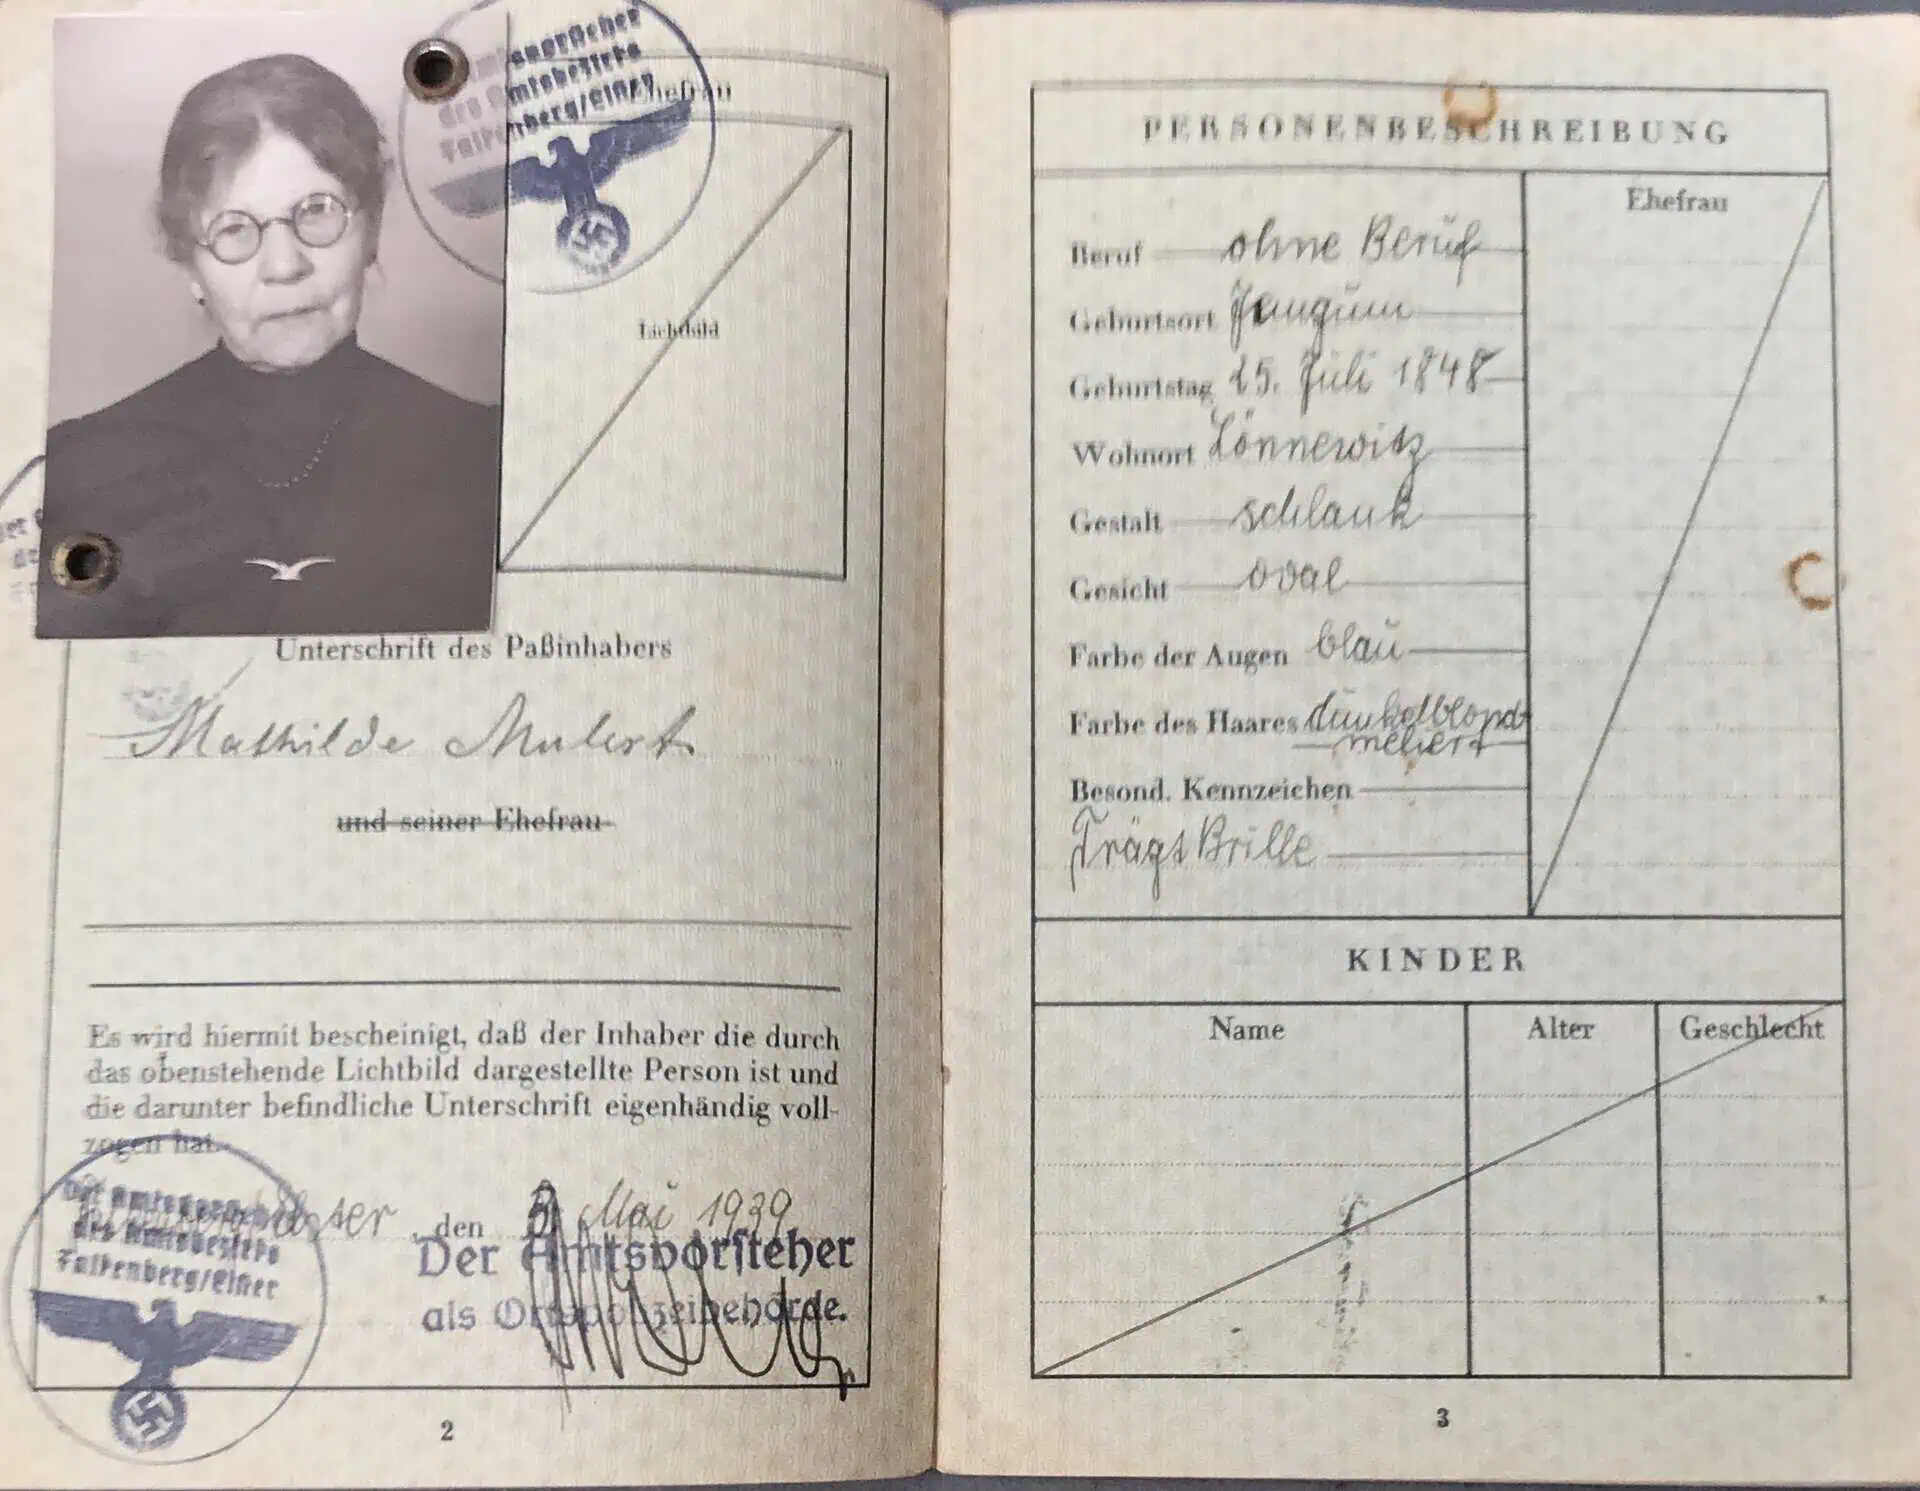 Der Amtsvorsteher
des Amtsbezirks
Falkenberg/Elster
Ehefrau
Lichtbild
Unterschrift des Paßinhabers
Mathilde Mulert
und seiner Ehefrau
Es wird hiermit bescheinigt, daß der Inhaber die durch
das obenstehende Lichtbild dargestellte Person ist und
die darunter befindliche Unterschrift eigenhändig voll-
zogen hat.
den 3. Mai 1939
Der Amtsvorsteher
als Ortspolizeibehörde.
Der Amtsvorsteher
des Amtsbezirks
Falkenberg/Elster
2
PERSONENBESCHREIBUNG
Ehefrau
Beruf ohne Beruf
Geburtsort Jemgum
Geburtstag 25. Juli 1848
Wohnort Lönnewitz
Gestalt schlank
Gesicht oval
Farbe der Augen blau
Farbe des Haares dunkelblond
meliert
Besond. Kennzeichen
Trägt Brille
KINDER
Name Alter Geschlecht
3